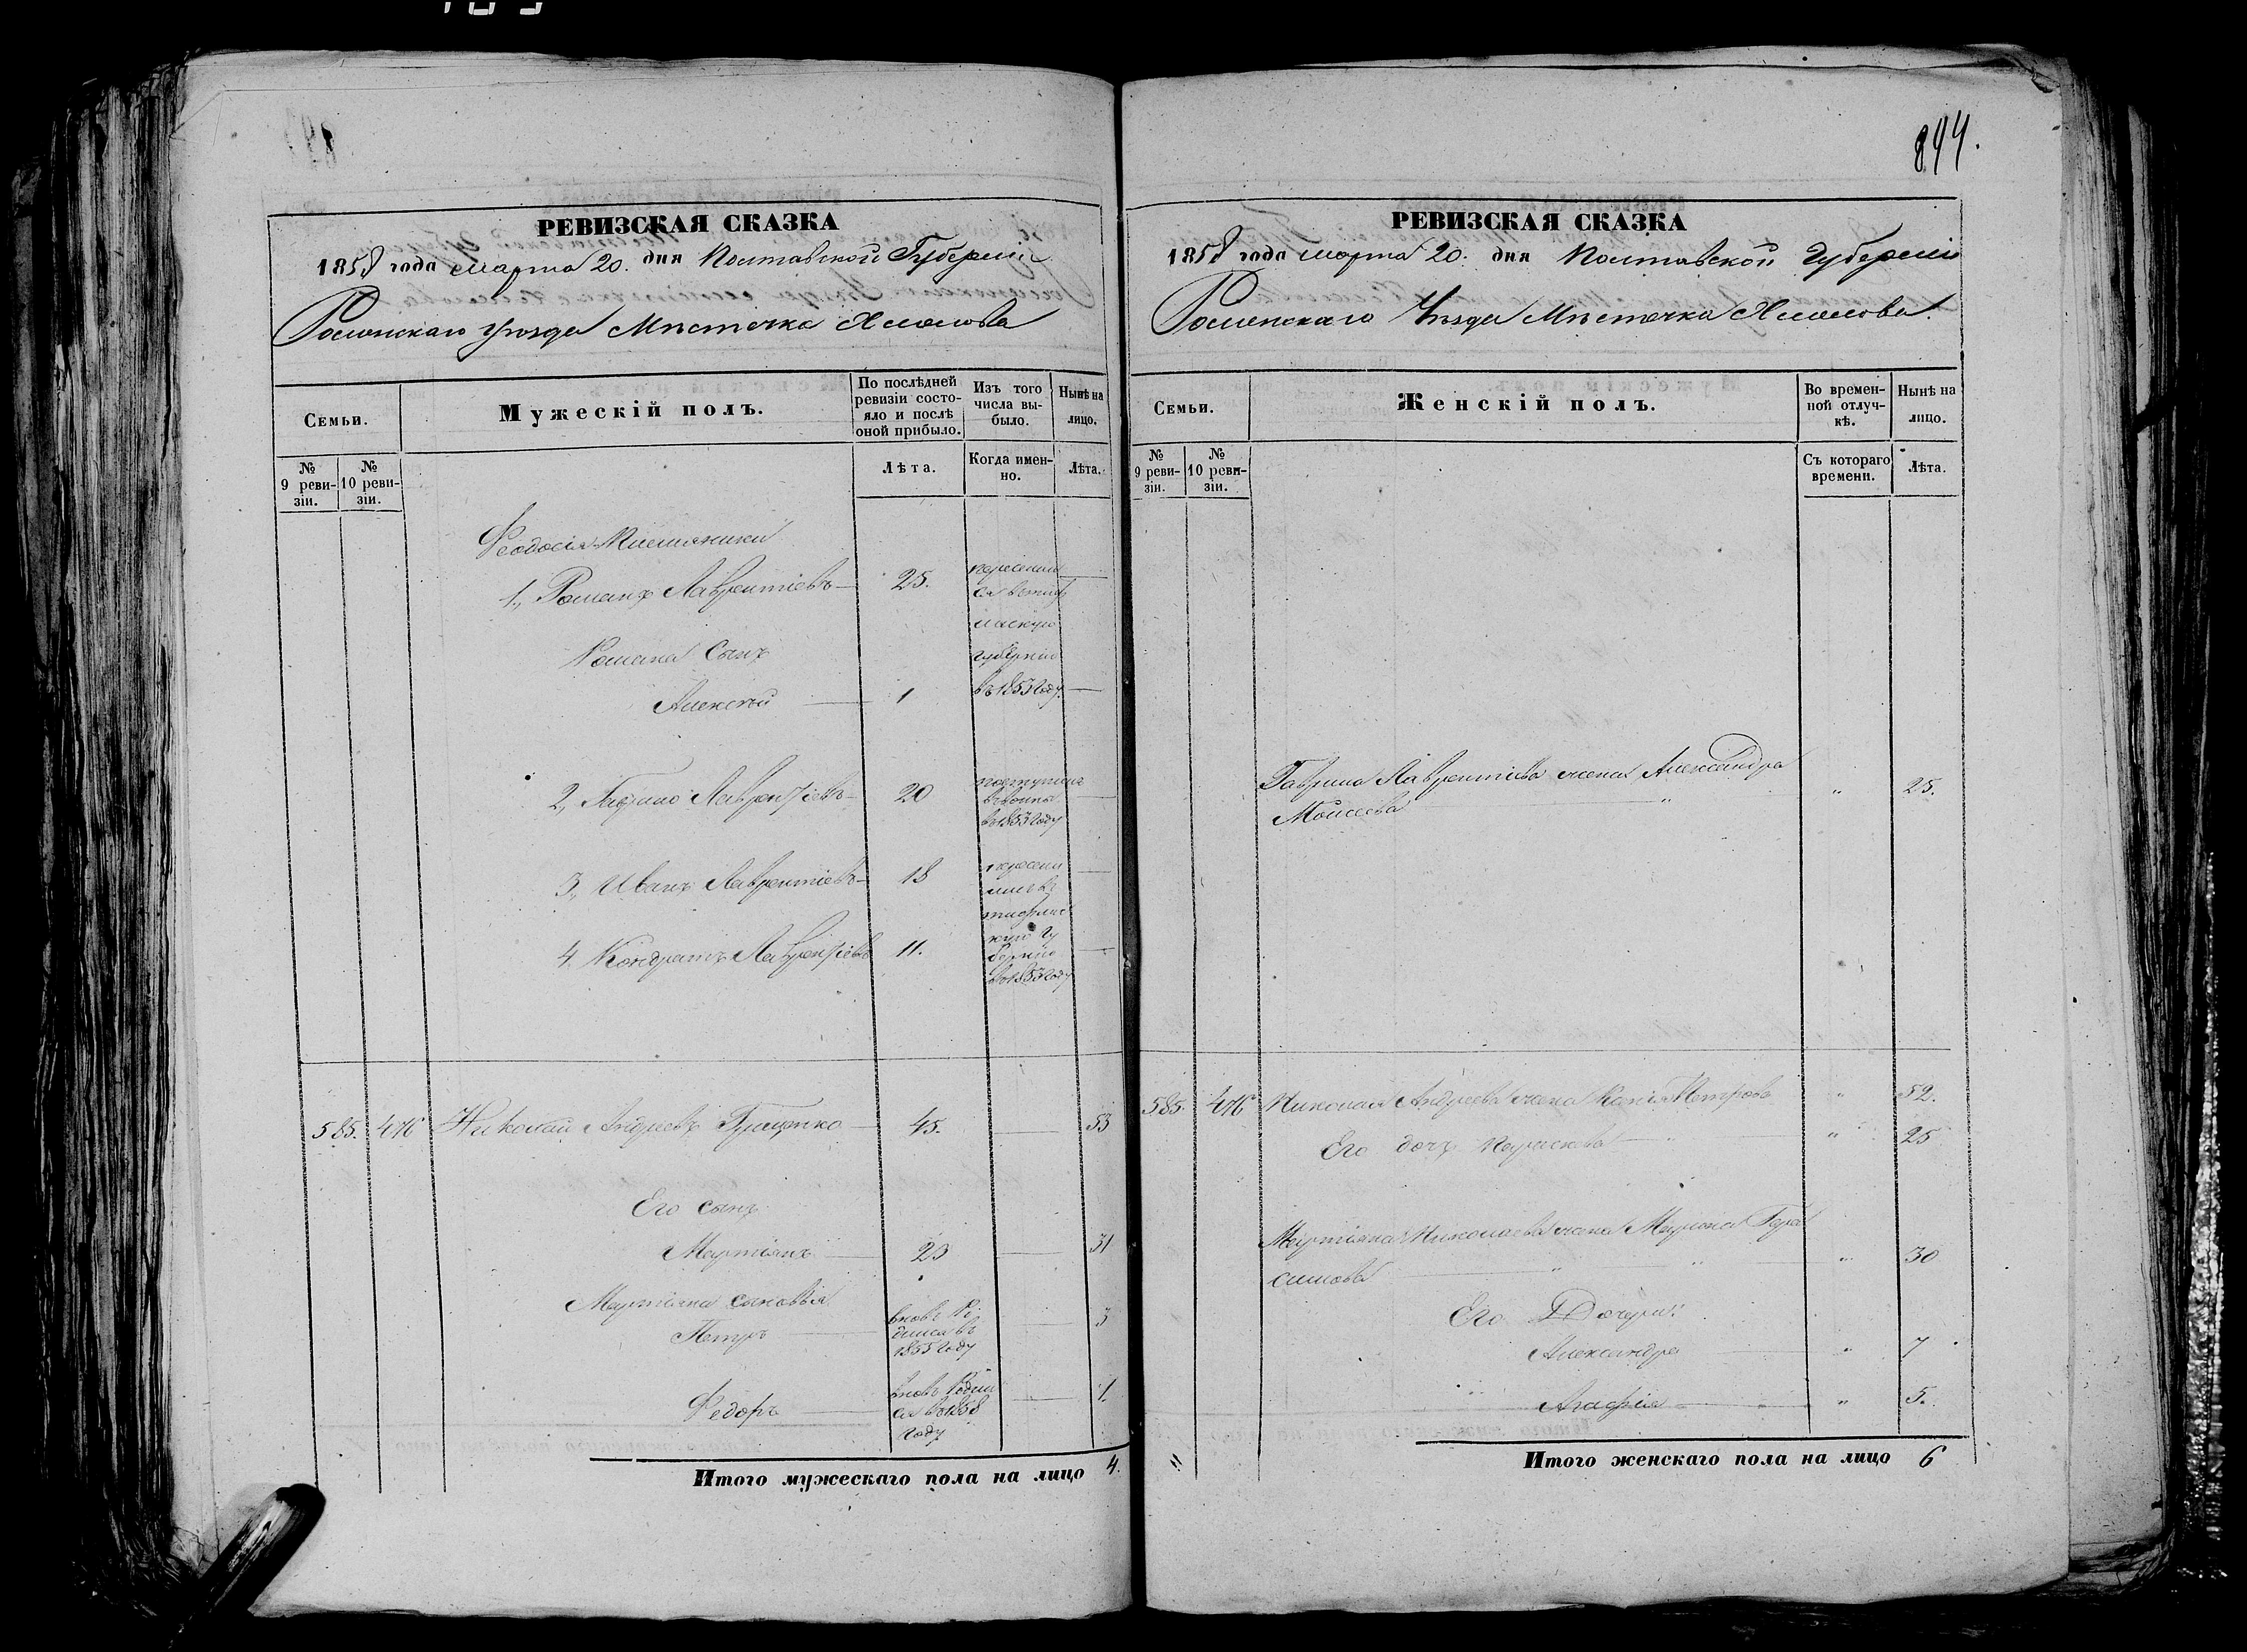 844.
РЕВИЗСКАЯ СКАЗКА
1858 года марта 20. дня Полтавской Губерніи
Роменскаго уѣзда Мѣстечка Хмелова
Семьи.
Мужескій полъ.
По послѣдней ревизіи состояло и послѣ оной прибыло.
Изъ того числа выбыло.
Нынѣ на лицо.
№ 9 ревизіи.
№ 10 ревизіи.
Лѣта.
Когда именно.
Лѣта.
Феодосія Племяники
1., Романъ Лаврентіевъ 25.
Романа Сынъ
Алексѣй 1
переселил
ся в тиф
лискую
губернію
въ 1853 году.
2, Гаврило Лаврентіевъ 20
поступилъ
въ 1853 году
3., Иванъ Лаврентіевъ 18
4. Кондратъ Лаврентіевъ 11.
переселились въ
тифлис
кую гу
бернію
въ 1853 году
585. 476 Николай Андреевъ Грищенко 45. 53
Его сынъ
Мартіянъ 23 31
Мартіяна сыновья
Петръ вновь Ро
дился въ
1855 году 3
Федоръ вновь Родил
ся въ 1858
году 1.
Итого мужескаго пола на лицо 4.
РЕВИЗСКАЯ СКАЗКА
1858 года марта 20. дня Полтавской Губерніи
Роменскаго Уѣзда Мѣстечка Хмелова.
Семьи.
Женскій полъ.
Во временной отлучкѣ.
Нынѣ на лицо.
№ 9 ревизіи.
№ 10 ревизіи.
Съ котораго времени.
Лѣта.
Гаврила Лаврентіева жена Александра
Моисеева " " 25.
585. 476 Николая Андреева жена Петрова " 52.
Его дочь Парасковья " " 25
Мартіяна Николаева жена Марина Гера
симова " " " 30
Его Дочери:
Александра " 7
Агафія " " 5.
Итого женскаго пола на лицо 6